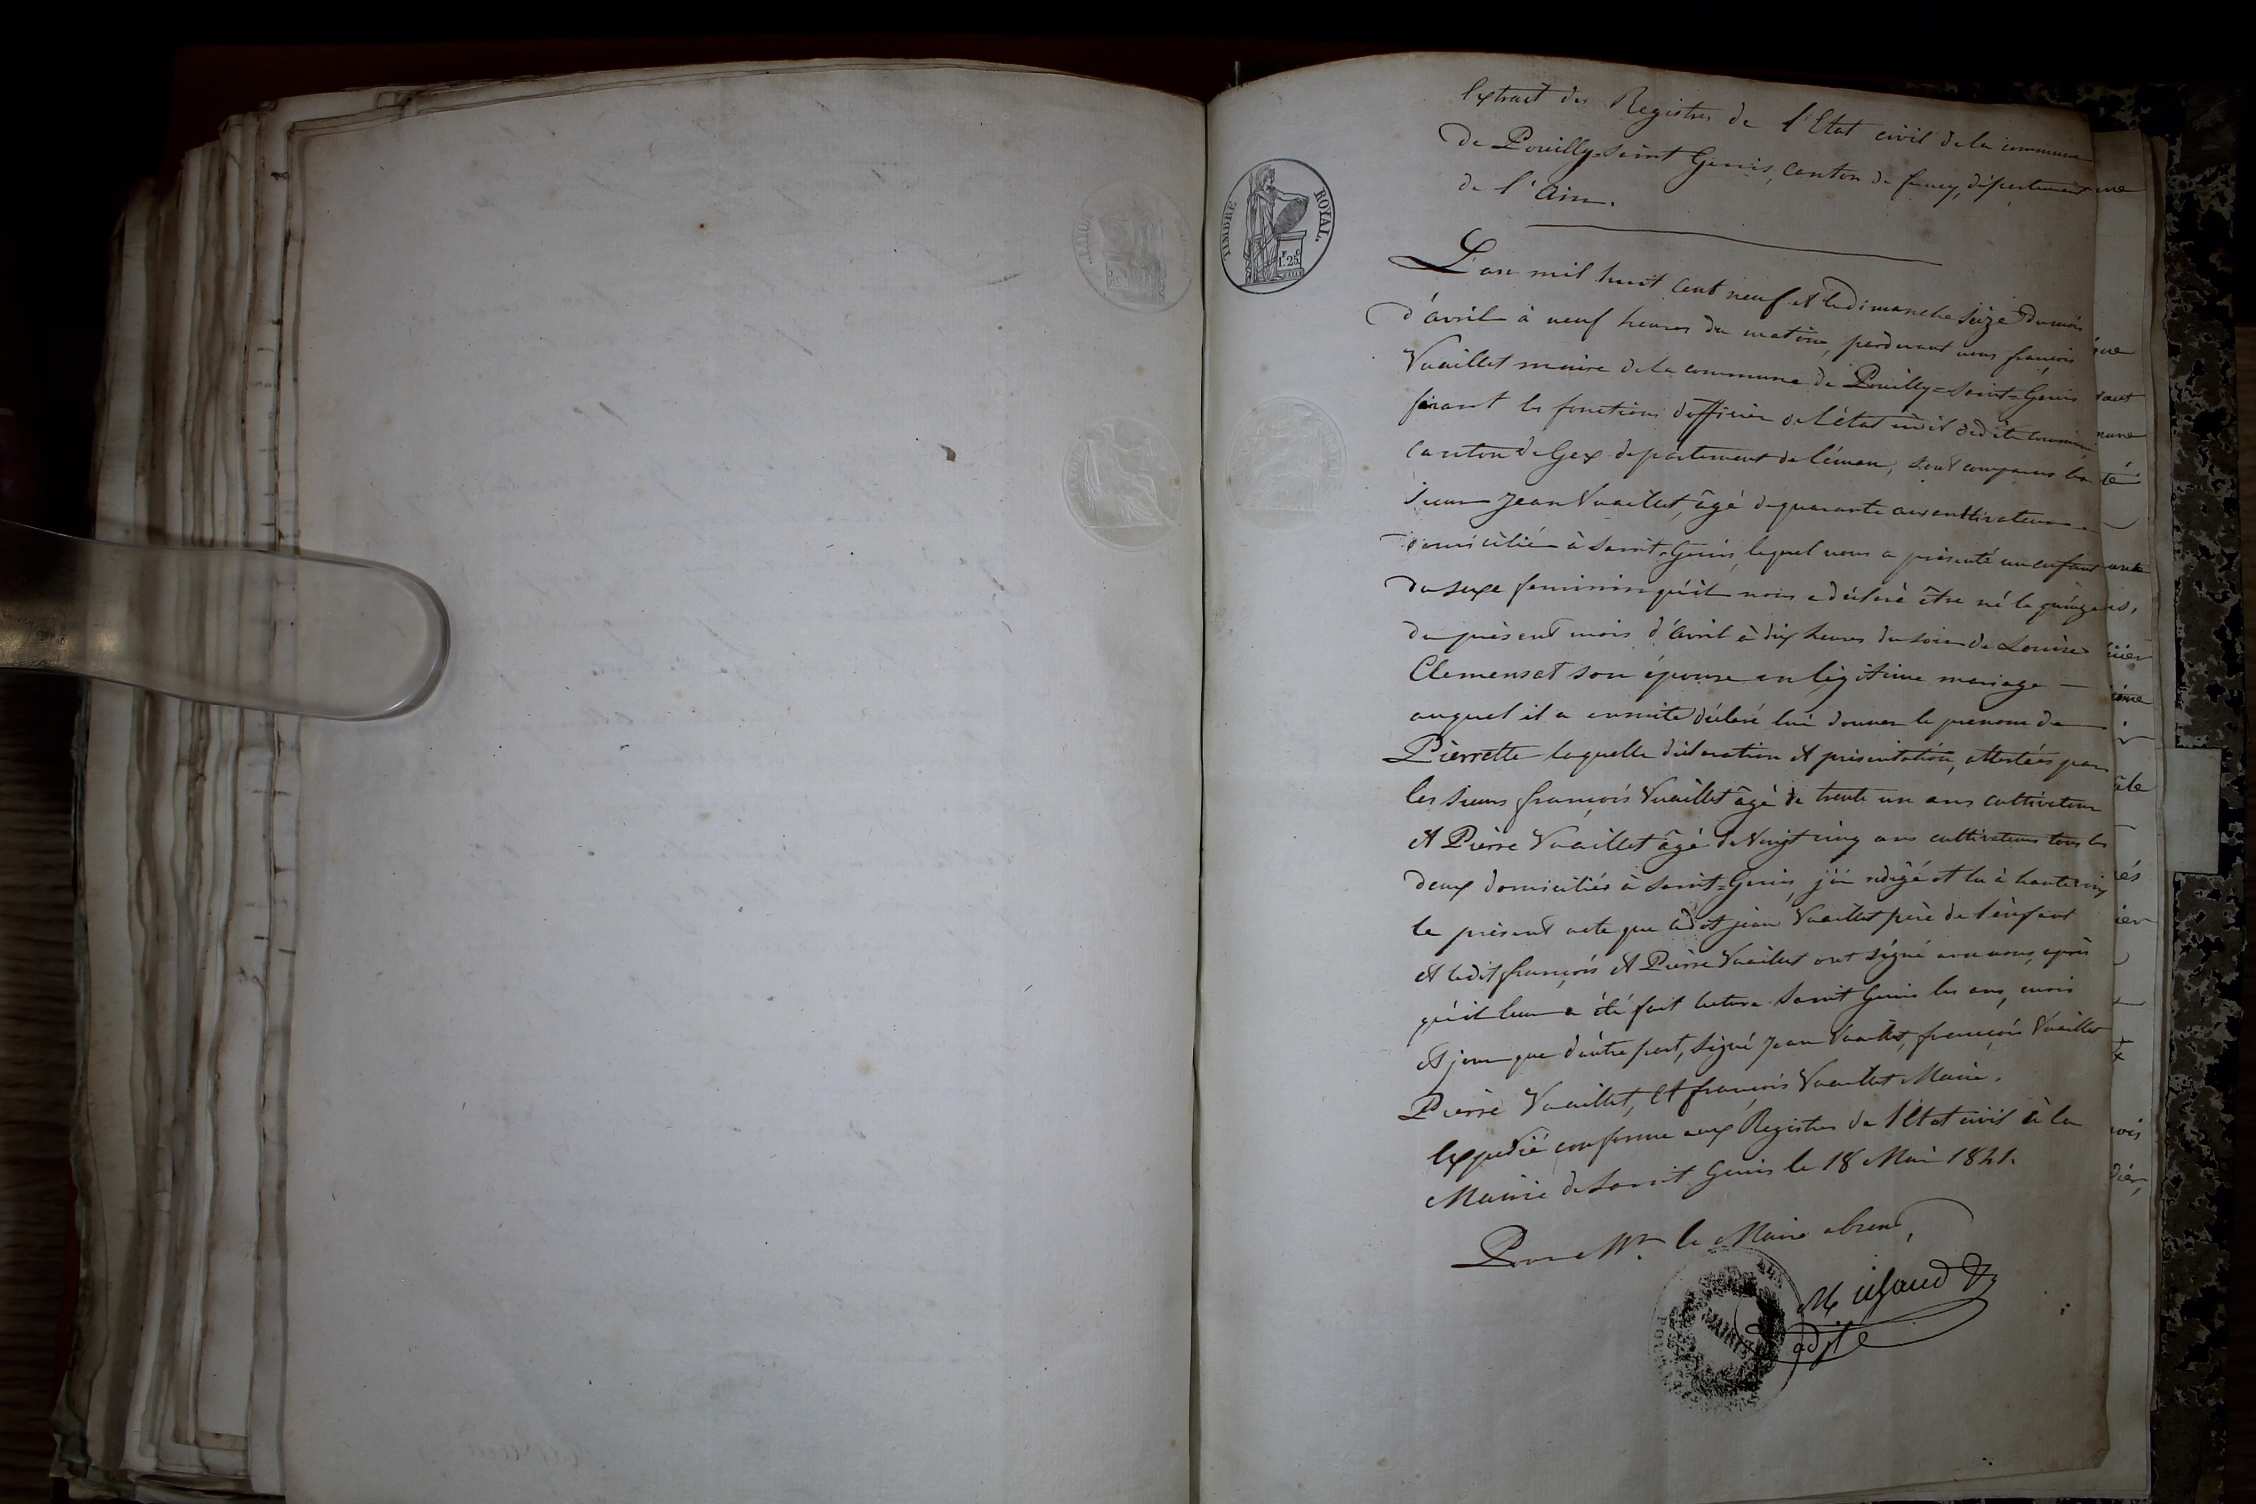 Extrait des Registres de l'Etat civil de la commune
de Pouilly-Saint Genis, canton de ferney, département
de l'Ain.
TIMBRE ROYAL.
1F.25C
L'an mil huit cent neuf et le dimanche seize du mois
d'avril à neuf heures du matin, pardevant nous françois
Vuaillet maire de la commune de Pouilly=Saint=Genis
faisant les fonctions d'officier de l'état civil de dite commune
canton de Gex département de léman, sont comparus
sieur Jean Vuaillet, âgé de quarante ans cultivateur
domicilié à Saint-Genis, lequel nous a présenté un enfant
du sexe feminin qu'il nous a déclaré être né le quinze
du présent mois d'avril à dix heures du soir de Louise
Clemensat son épouse en légitime mariage —
auquel il a ensuite déclaré lui donner le prenom de
Pierrette laquelle déclaration et présentation, attestées par
les sieurs françois Vuaillet âgé de trente un ans cultivateur
et Pierre Vuaillet âgé de Vingt cinq ans cultivateurs tous les
deux domiciliés à Saint=Genis, j'ai rédigé et lu à haute voix
le présent acte que ledit jean Vuaillet père de l'enfant
et ledit françois et Pierre Vuaillet ont signé avec nous, après
qu'il leur a été fait lecture Saint Genis les ans, mois
et jour que d'autre part, signé Jean Vuaillet, françois Vuaillet
Pierre Vuaillet, et françois Vuaillet Maire.
Expédié conforme aux Registres de l'Etat civil à la
Mairie de Saint Genis le 18 Mai 1841.
Pour Mr. le Maire absent,
adjt
MAIRIE